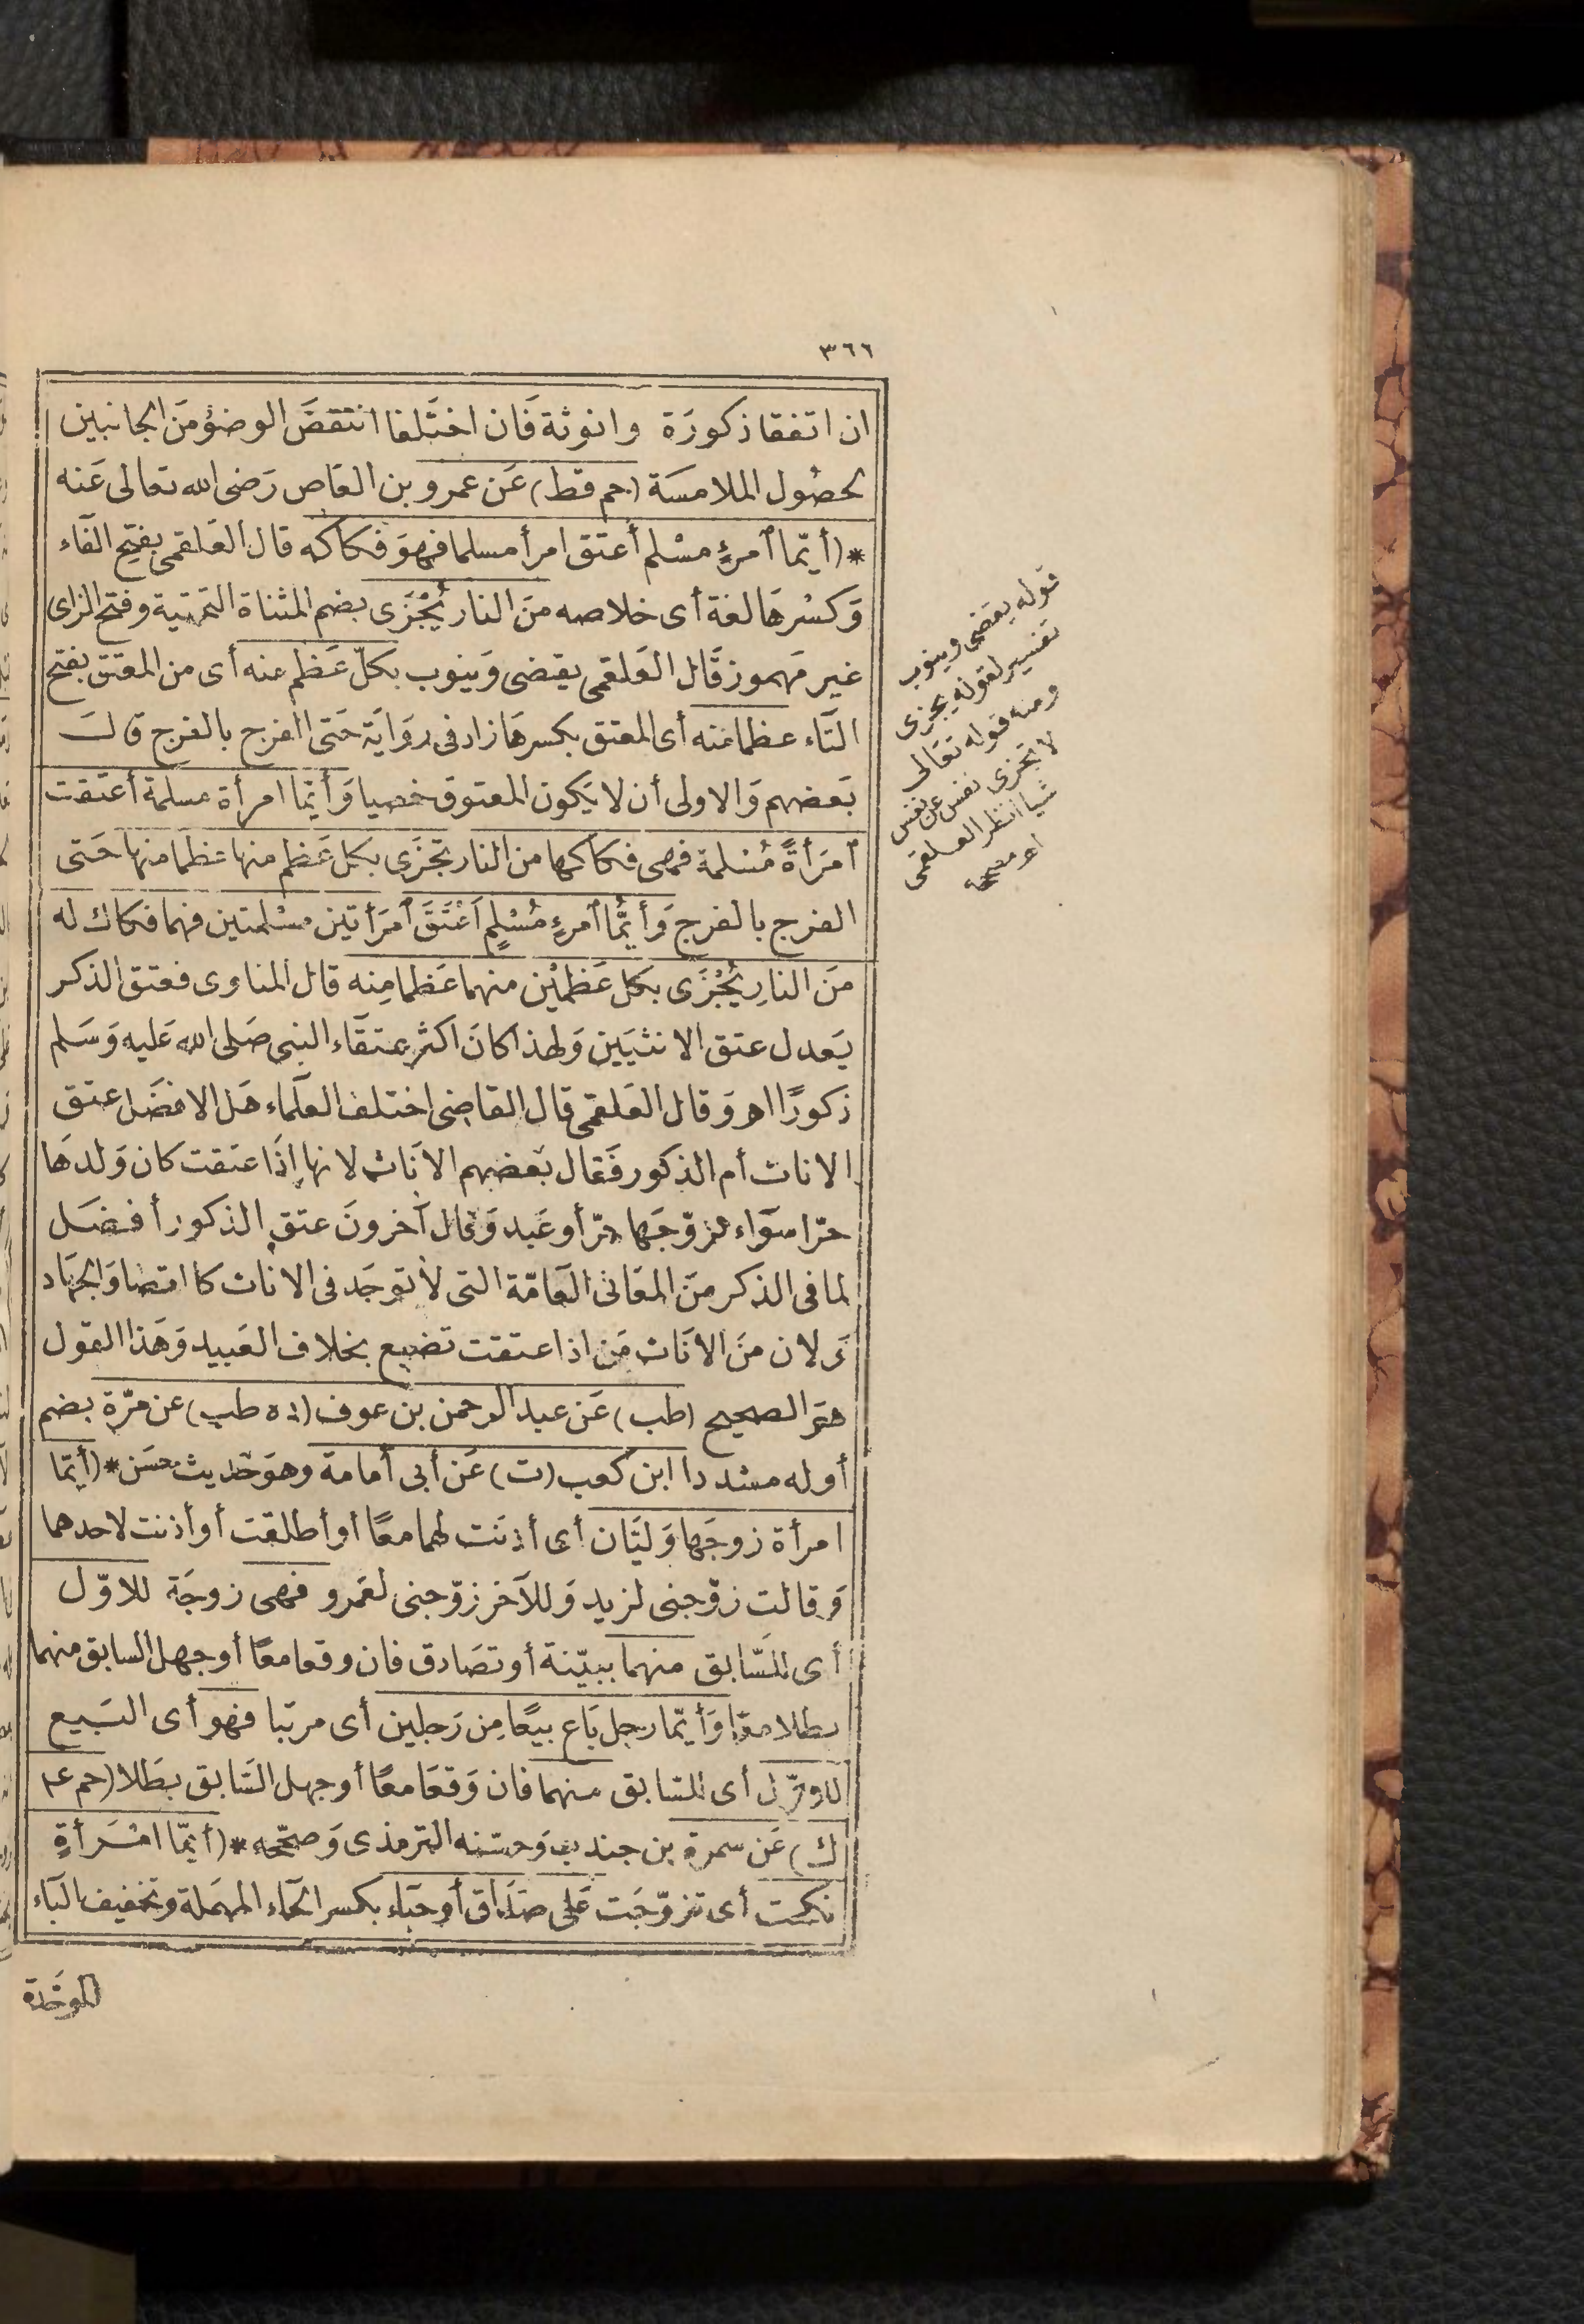 ٣٦٦
ان اتفقا ذكورَة وانوثة فَان اختَلفا انتقضَ الوضؤمَن الجانبين
لحصُول الملامسَة (حم قط) عَن عمرو بن العَاص رَضى الله تعالى عَنه
*(أيّما ٱمرءٍ مسْلم أعتَق امرأ مسلما فهوَ فكاكه قال العَلقمى بفتح الفَاء
وَكسْرهَا لغة أى خلاصه منَ النار يُجْزَى بضم المثناة التحتية وفتح الزاى
غير مَهموز قَال العَلقمى يقضى وَينوب بكلّ عَظم عنه أى من المعتَق بفتح
التَاء عظما منه أى المعتق بكسرهَا زاد فى روَايَة حَتى الفرج بالفرج قالَ
بَعضهم وَالاولى أن لا يَكون المعتوق خصيا وَأيّما امرأة مسلمة أعتَقت
ٱمرَأةً مُسْلمة فهى فكاكها من النار تجزَى بكل عَظم منها عظما منها حَتى
الفرج بالفرج وَأيُّما ٱمرءٍ مُسْلٍم اَعْتَقَ ٱمرَأتيْن مسْلمتين فهما فكاك له
مَن النارِ يُجْزَى بكل عَظمَيْن منهما عَظما مِنه قال المناوى فعتق الذكر
يَعدل عتق الانثيَين وَلهذا كانَ اكثر عتقَاء النبى صَلى الله عَليه وَسَلم
ذكورًا اه وَقال العَلقمى قال القاضِى اختلف العلَماء هَل الافضَل عتق
الاناث أم الذكور فَقال بَعضهم الانَاث لانها إذَا عتقت كان وَلدهَا
حرّا سوَاء تزوّجَها حرّ أو عَبد وَقال آخرونَ عتق الذكور أفضَل
لما فى الذكر منَ المعَانى العَامّة التى لا توجَد فى الاناث كالقضا وَالجهَاد
وَلان منَ الانَاث مَن اذا عتقت تضيع بخلاف العَبيد وَهَذا القول
هوَ الصحيح (طب) عَن عبد الرحمن بن عوف (د ه طب) عن مرّة بضم
أوله مشددا ابن كعب (ت) عَن أبى أمامة وهوَ حَديث حسَن *(أيّما
امرأة زوجَها وَليَّان أى أذنَت لهما معًا أو أطلقت أو أذنت لاحدهما
وَقالت زوّجنى لزيد وَللآخر زوّجنى لعَمرو فهى زوجَة للاوّل
أى للسّابق منهما ببيّنة أو تصَادق فان وقعا معًا أو جهل السابق منهما
بطلا معًا وَأيّما رجل بَاع بيعًا مِن رَجلين أى مرتبا فهو أى البَيع
للاوّل أى للسّابق منهما فان وَقعَا معًا أو جهل السَابق بطَلا (حم ٤
ك) عَن سمرة بن جندب وَحسّنه الترمذى وَصحّحه *(أيّما امْرَأةٍ
نكحت أى تزوّجَت عَلى صَدَاق أو حبَاء بكسر الحَاء المهمَلة وتخفيف البَاء
الموحَّدة
قوله يقضى وينوب
تفسير لقوله يجزى
ومنه قوله تعَالى
لا تجزى نفس عن نفس
شيا انظر العلقمى
اه مصححه